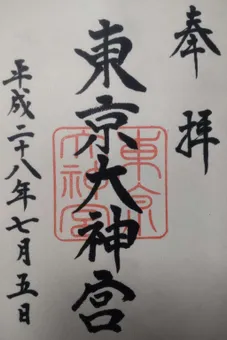 奉拝
東京大神宮
東京大神宮
平成二十八年七月五日